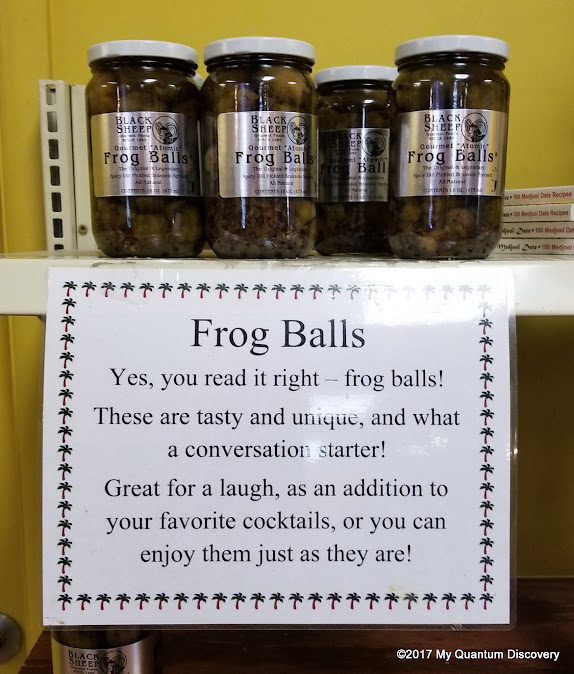 BLACK
SHEEP
Gourmet "Atomic"
Frog Balls
The Original & Legendary
Spicy Dill Pickled Brussels Sprouts
All Natural
CONTENTS 16 OZ. (473 ml)
BLACK
SHEEP
Gourmet "Atomic"
Frog Balls
The Original & Legendary
Spicy Dill Pickled Brussels Sprouts
All Natural
CONTENTS 16 OZ. (473 ml)
BLACK
SHEEP
"Atomic"
Frog Ball
BLACK
SHEEP
Gourmet "Atomic"
Frog Balls
The Original & Legendary
Spicy Dill Pickled Brussels Sprouts
All Natural
CONTENTS 16 OZ. (473 ml)
100 Medjool Date Recipes
100 Medjool Date Recipes
Medjool Date - 100 Medjool Date
Frog Balls
Yes, you read it right – frog balls!
These are tasty and unique, and what
a conversation starter!
Great for a laugh, as an addition to
your favorite cocktails, or you can
enjoy them just as they are!
BLACK
SHEEP
©2017 My Quantum Discovery